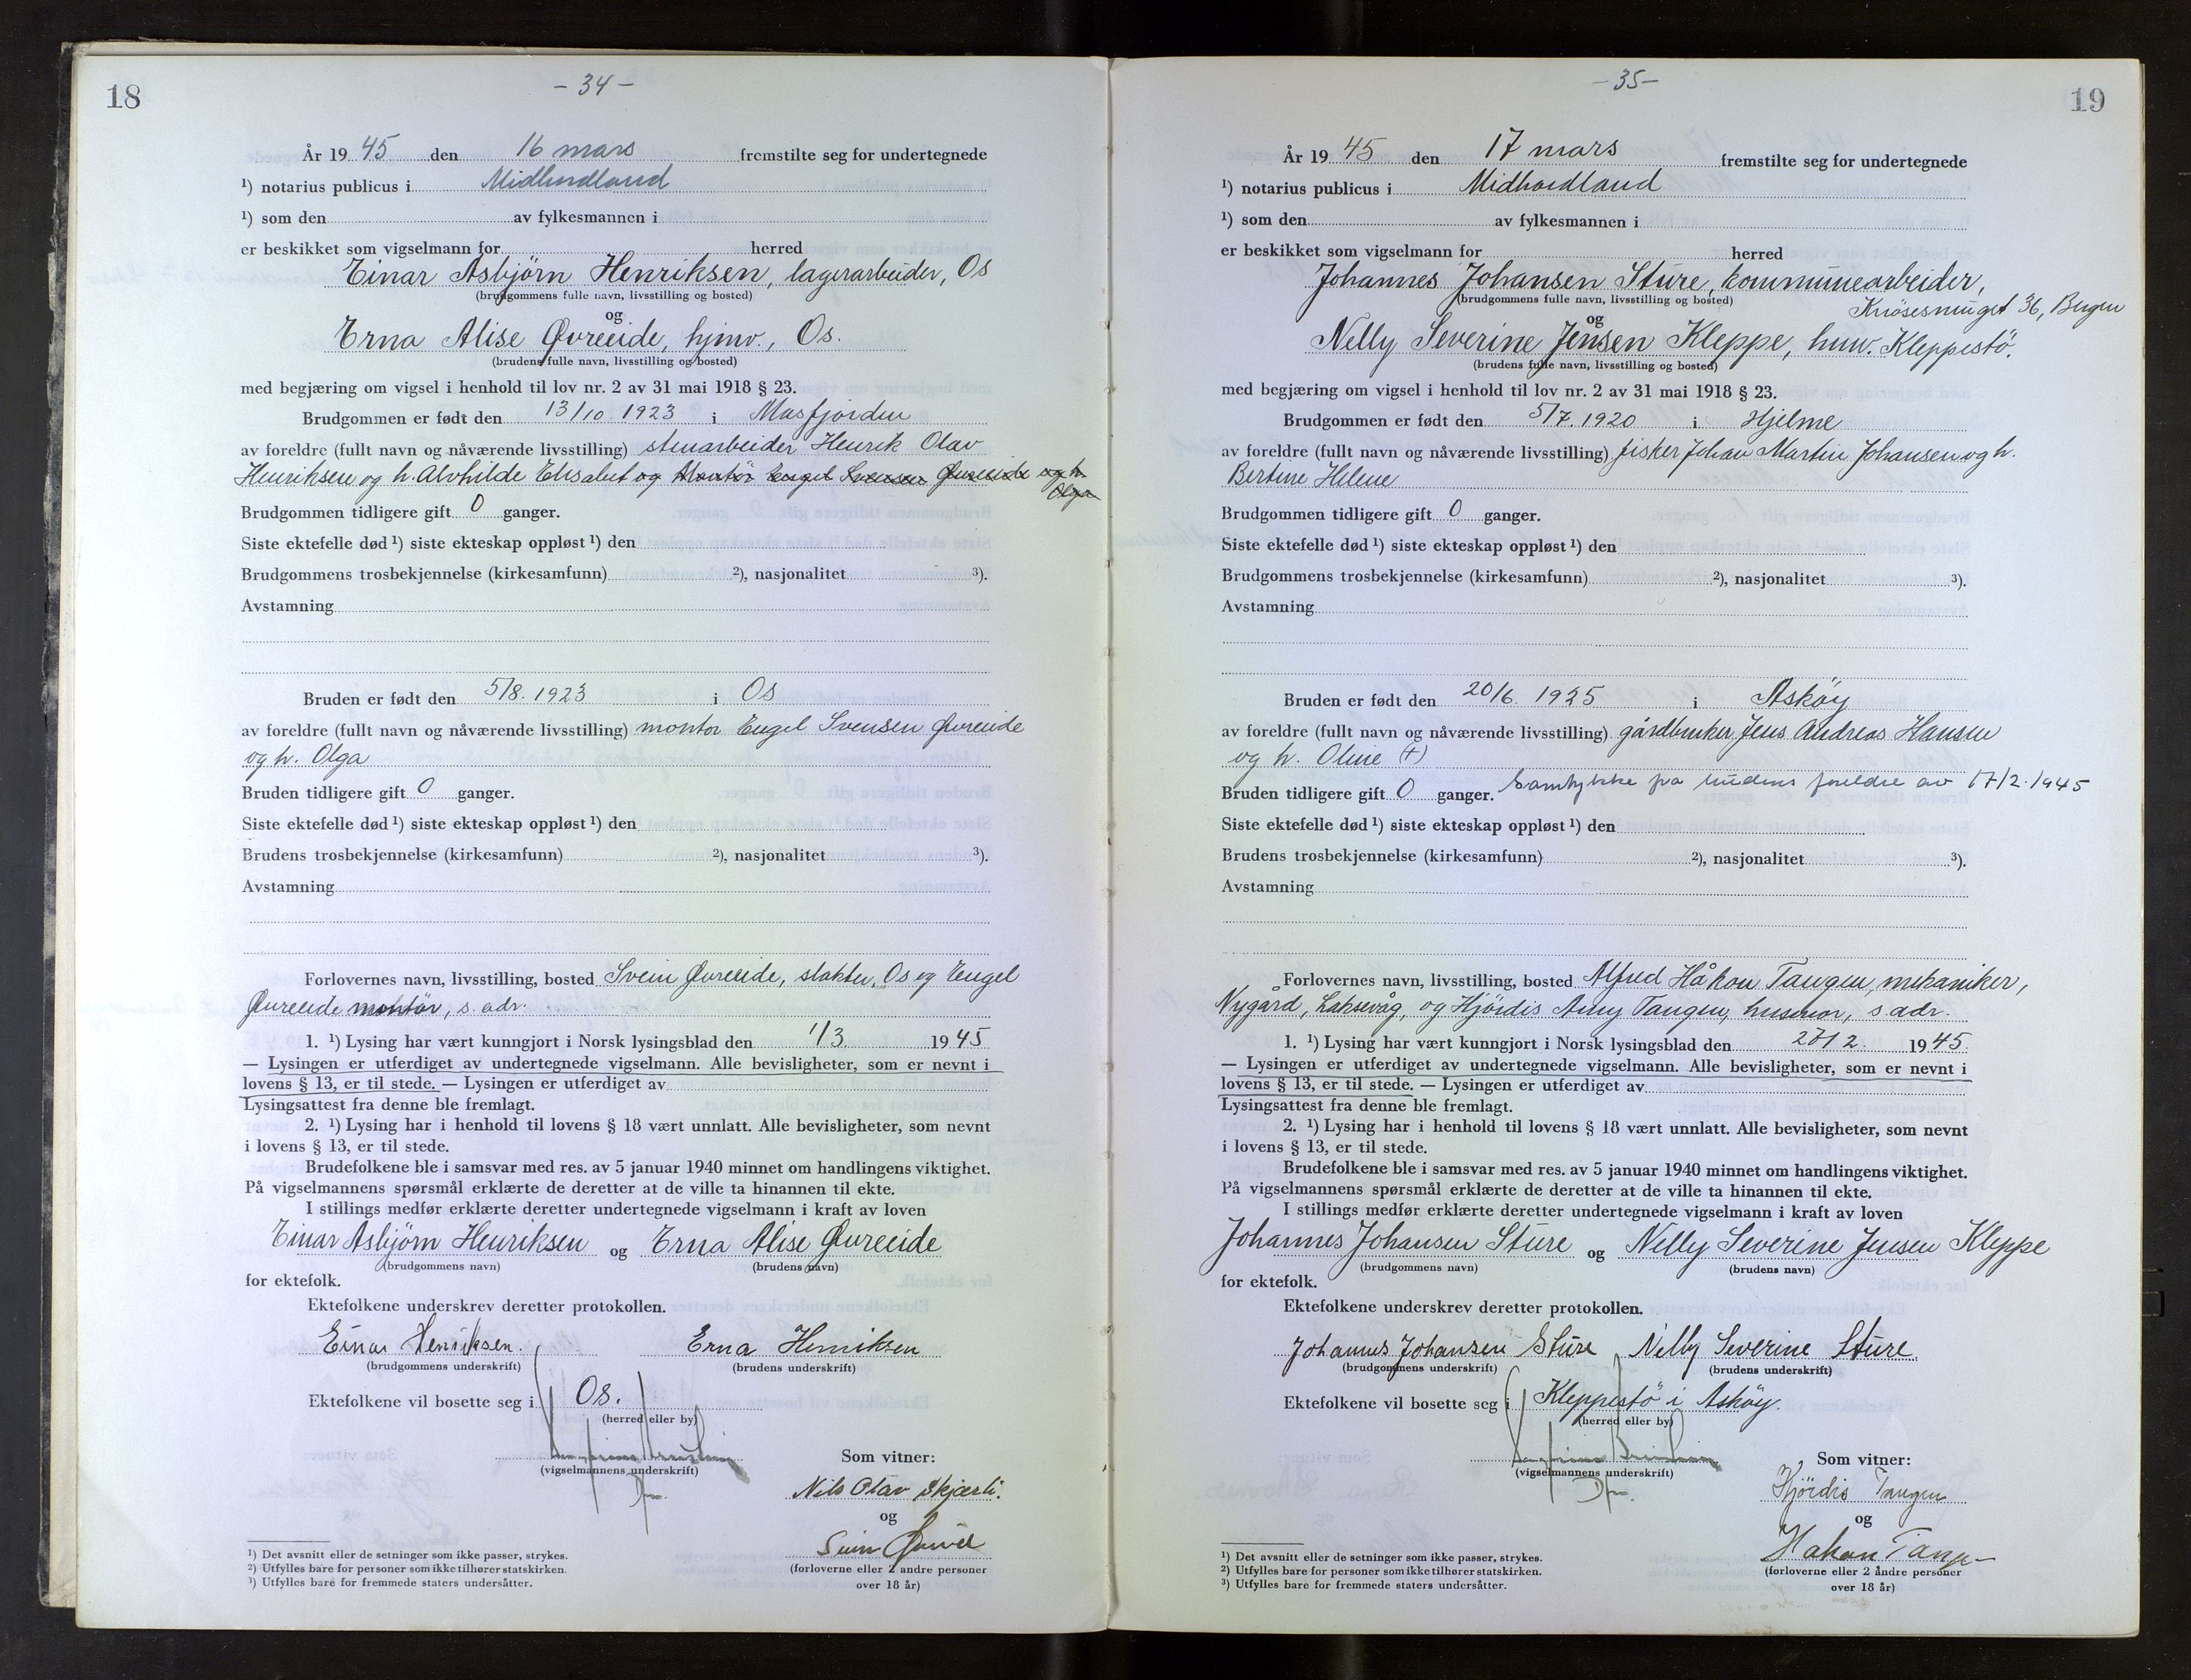 18
- 34 -
År 19 45 den 16 mars fremstilte seg for undertegnede
¹) notarius publicus i Midhordland
¹) som den av fylkesmannen i
er beskikket som vigselmann for herred
Einar Asbjörn Henriksen, lagerarbeider, Os
(brudgommens fulle navn, livsstilling og bosted)
og
Erna Alise Øvreeide, hjmv., Os.
(brudens fulle navn, livsstilling og bosted)
med begjæring om vigsel i henhold til lov nr. 2 av 31 mai 1918 § 23.
Brudgommen er født den 13/10. 1923 i Masfjorden
av foreldre (fullt navn og nåværende livsstilling) stenarbeider Henrik Olav
Henriksen og h. Alvhilde Elisabet og Montör Engel Svensen Øvreeide og h.
Olga
Brudgommen tidligere gift 0 ganger.
Siste ektefelle død ¹) siste ekteskap oppløst ¹) den
Brudgommens trosbekjennelse (kirkesamfunn) ²), nasjonalitet ³).
Avstamning
Bruden er født den 5/8. 1923 i Os
av foreldre (fullt navn og nåværende livsstilling) montör Engel Svensen Øvreeide
og h. Olga
Bruden tidligere gift 0 ganger.
Siste ektefelle død ¹) siste ekteskap oppløst ¹) den
Brudens trosbekjennelse (kirkesamfunn) ²), nasjonalitet ³).
Avstamning
Forlovernes navn, livsstilling, bosted Svein Øvreeide, slakter, Os og Engel
Øvreeide montör, s. adr.
1. ¹) Lysing har vært kunngjort i Norsk lysingsblad den 1/3. 19 45
— Lysingen er utferdiget av undertegnede vigselmann. Alle bevisligheter, som er nevnt i
lovens § 13, er til stede. — Lysingen er utferdiget av
Lysingsattest fra denne ble fremlagt.
2. ¹) Lysing har i henhold til lovens § 18 vært unnlatt. Alle bevisligheter, som nevnt
i lovens § 13, er til stede.
Brudefolkene ble i samsvar med res. av 5 januar 1940 minnet om handlingens viktighet.
På vigselmannens spørsmål erklærte de deretter at de ville ta hinannen til ekte.
I stillings medfør erklærte deretter undertegnede vigselmann i kraft av loven
Einar Asbjörn Henriksen og Erna Alise Øvreeide
(brudgommens navn) (brudens navn)
for ektefolk.
Ektefolkene underskrev deretter protokollen.
Einar Henriksen. Erna Henriksen
(brudgommens underskrift) (brudens underskrift)
Ektefolkene vil bosette seg i Os.
(herred eller by)
Som vitner:
(vigselmannens underskrift)
Nils Olav Skjærli.
og
Svein Øvreeide
(forloverne eller 2 andre personer
over 18 år)
¹) Det avsnitt eller de setninger som ikke passer, strykes.
²) Utfylles bare for personer som ikke tilhører statskirken.
³) Utfylles bare for fremmede staters undersåtter.
19
- 35 -
År 19 45 den 17 mars fremstilte seg for undertegnede
¹) notarius publicus i Midhordland
¹) som den av fylkesmannen i
er beskikket som vigselmann for herred
Johannes Johansen Sture, kommunearbeider,
(brudgommens fulle navn, livsstilling og bosted)
Knösesmuget 36, Bergen
og
Nelly Severine Jensen Kleppe, husv. Kleppestö.
(brudens fulle navn, livsstilling og bosted)
med begjæring om vigsel i henhold til lov nr. 2 av 31 mai 1918 § 23.
Brudgommen er født den 5/7. 1920 i Hjelme
av foreldre (fullt navn og nåværende livsstilling) fisker Johan Martin Johansen og h.
Bertine Helene
Brudgommen tidligere gift 0 ganger.
Siste ektefelle død ¹) siste ekteskap oppløst ¹) den
Brudgommens trosbekjennelse (kirkesamfunn) ²), nasjonalitet ³).
Avstamning
Bruden er født den 20/6. 1925 i Asköy
av foreldre (fullt navn og nåværende livsstilling) gårdbruker Jens Andreas Hansen
og h. Oline (+)
Bruden tidligere gift 0 ganger. Samtykke fra brudens foreldre av 17/2. 1945
Siste ektefelle død ¹) siste ekteskap oppløst ¹) den
Brudens trosbekjennelse (kirkesamfunn) ²), nasjonalitet ³).
Avstamning
Forlovernes navn, livsstilling, bosted Alfred Håkon Tangen, mekaniker,
Nygård, Laksevåg, og Hjördis Amy Tangen, husmor, s. adr.
1. ¹) Lysing har vært kunngjort i Norsk lysingsblad den 19 45.
— Lysingen er utferdiget av undertegnede vigselmann. Alle bevisligheter, som er nevnt i
lovens § 13, er til stede. — Lysingen er utferdiget av
Lysingsattest fra denne ble fremlagt.
2. ¹) Lysing har i henhold til lovens § 18 vært unnlatt. Alle bevisligheter, som nevnt
i lovens § 13, er til stede.
Brudefolkene ble i samsvar med res. av 5 januar 1940 minnet om handlingens viktighet.
På vigselmannens spørsmål erklærte de deretter at de ville ta hinannen til ekte.
I stillings medfør erklærte deretter undertegnede vigselmann i kraft av loven
Johannes Johansen Sture og Nelly Severine Jensen Kleppe
(brudgommens navn) (brudens navn)
for ektefolk.
Ektefolkene underskrev deretter protokollen.
Johannes Johansen Sture Nelly Severine Sture.
(brudgommens underskrift) (brudens underskrift)
Ektefolkene vil bosette seg i Kleppestö i Asköy.
(herred eller by)
Som vitner:
(vigselmannens underskrift)
Hjördis Tangen
og
Håkon Tangen
(forloverne eller 2 andre personer
over 18 år)
¹) Det avsnitt eller de setninger som ikke passer, strykes.
²) Utfylles bare for personer som ikke tilhører statskirken.
³) Utfylles bare for fremmede staters undersåtter.